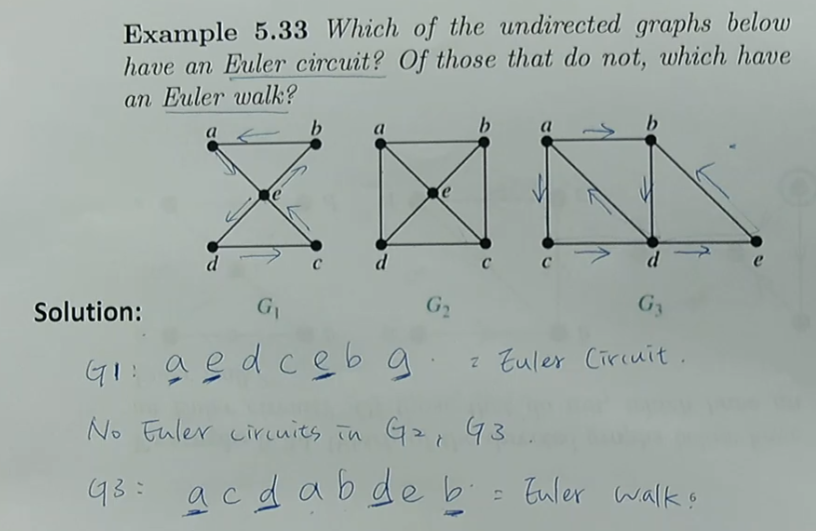 Example 5.33 Which of the undirected graphs below
have an Euler circuit? Of those that do not, which have
an Euler walk?
a b a b a b
e e
d c d c c d e
G₁ G₂ G₃
Solution:
G1: a e d c e b a = Euler Circuit.
No Euler circuits in G2, G3.
G3: a c d a b d e b = Euler walk.